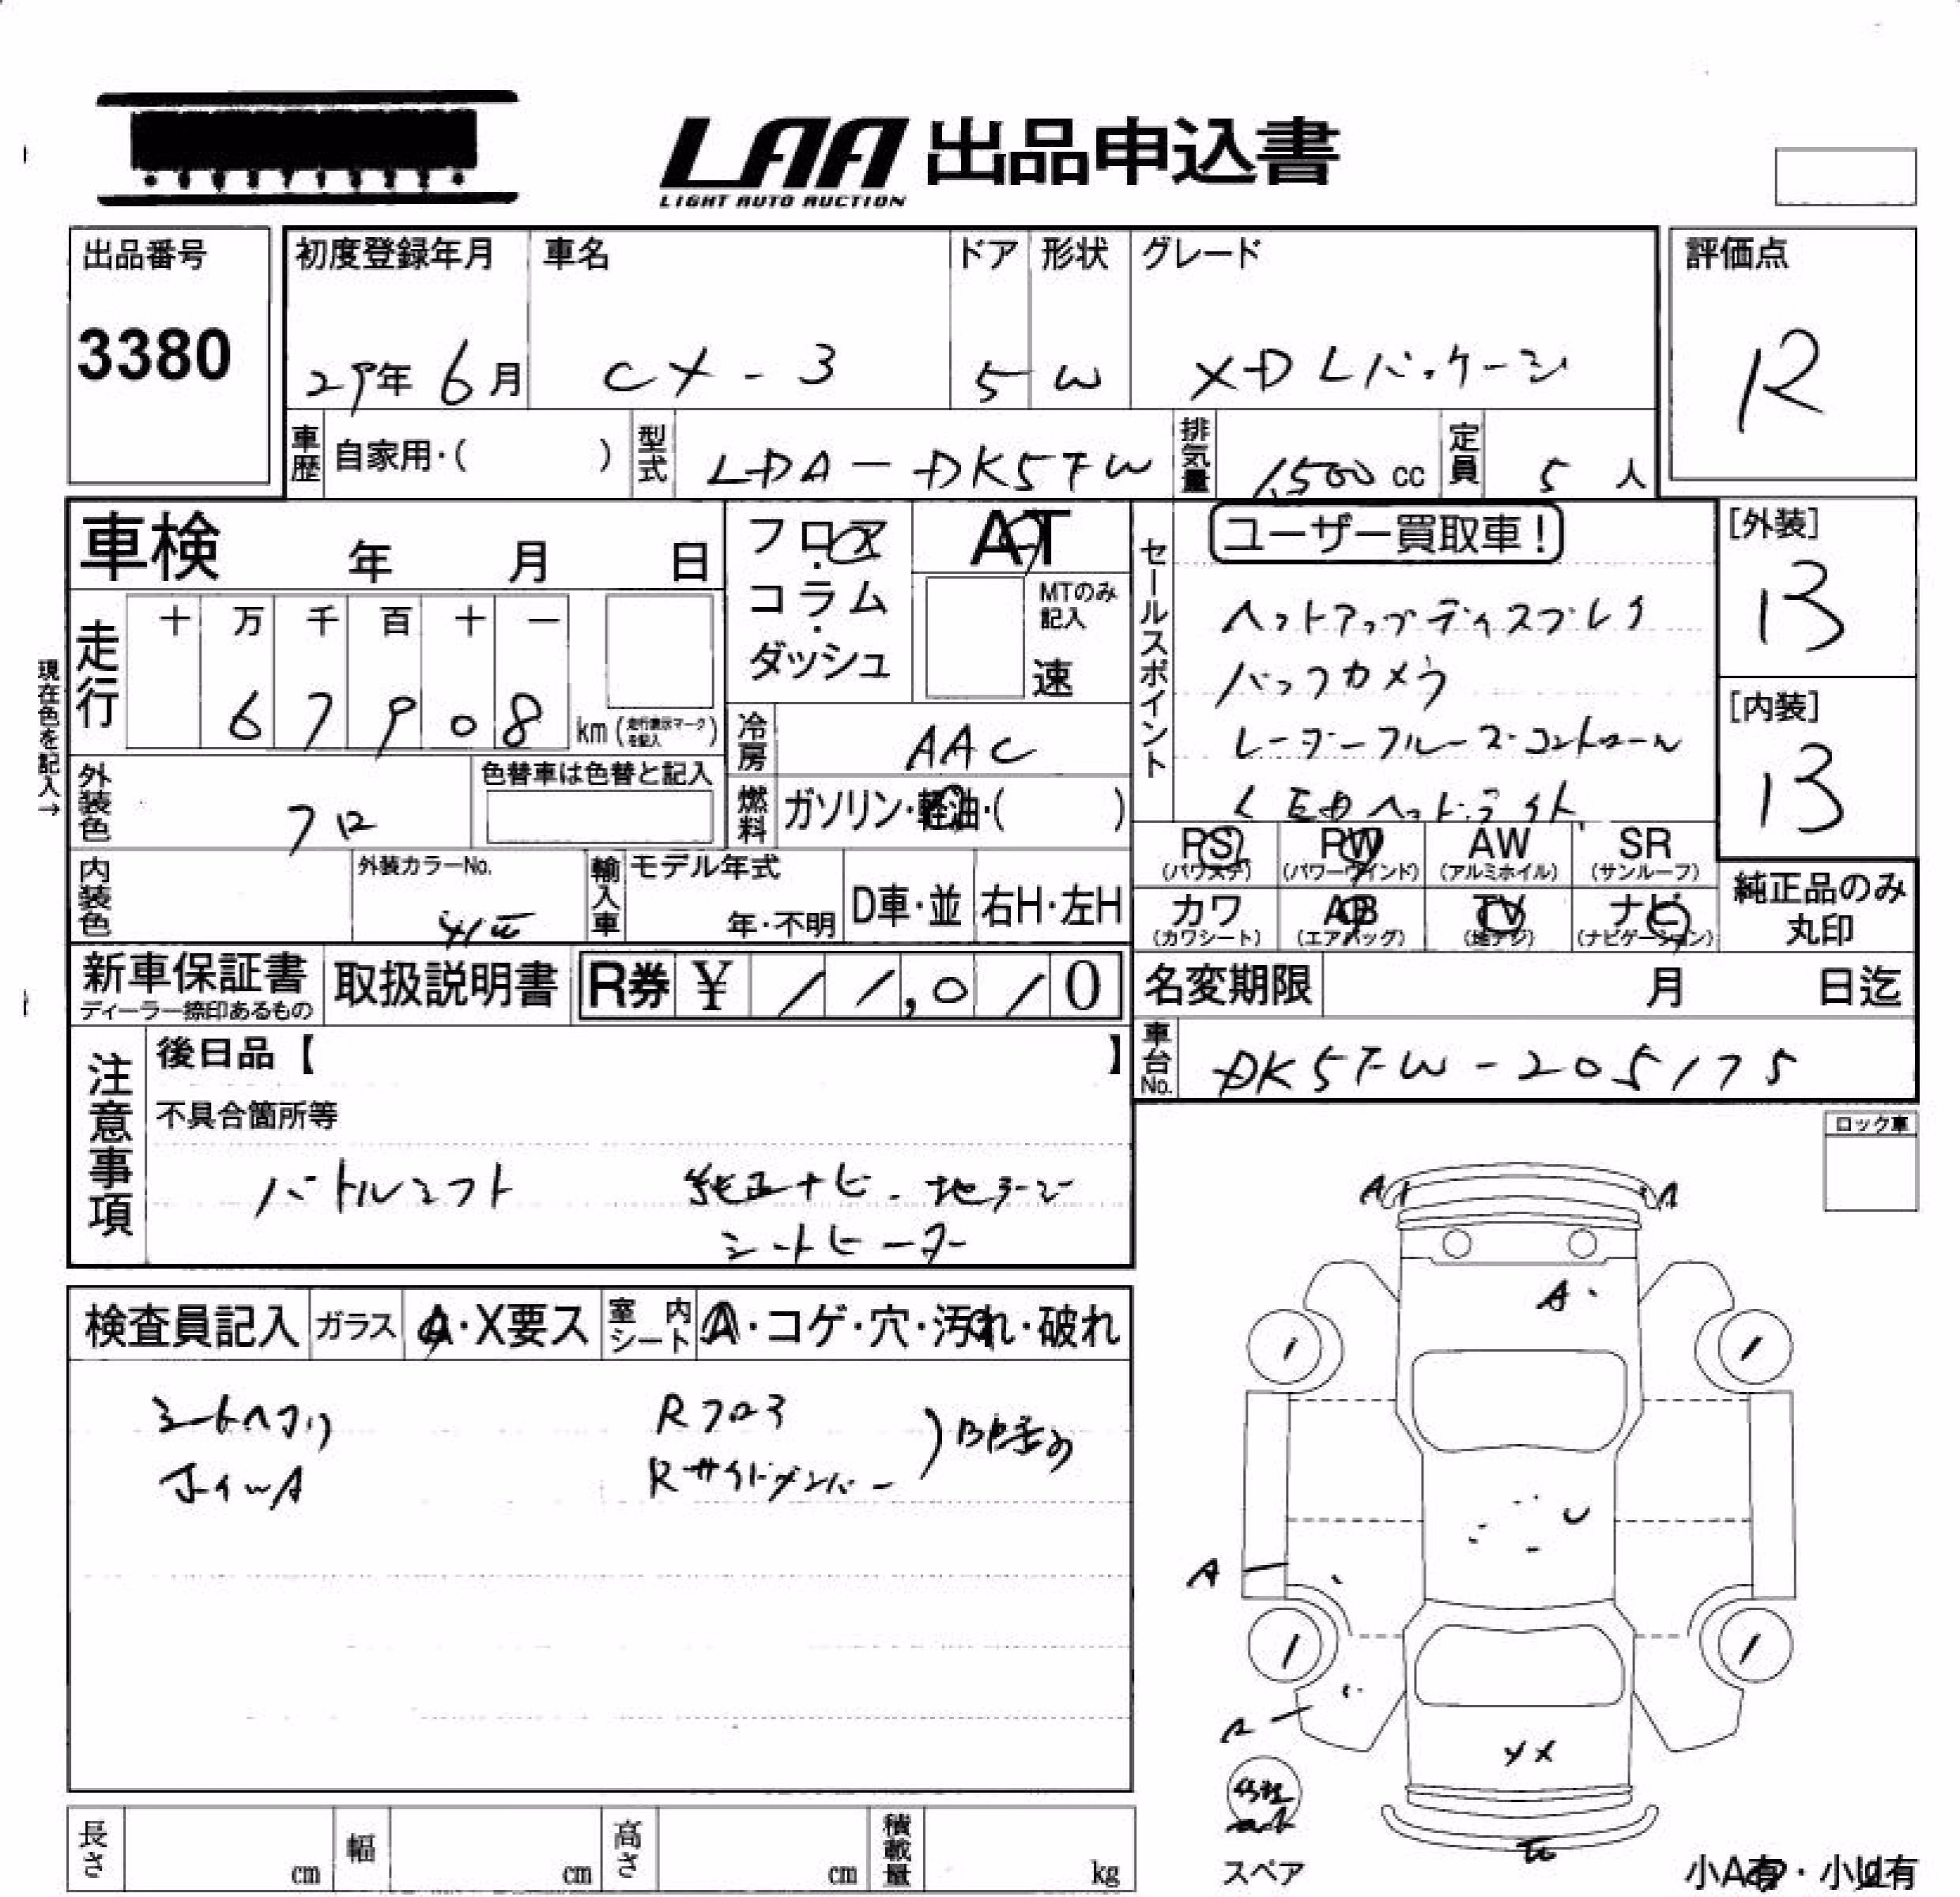 LAA 出品申込書
LIGHT AUTO AUCTION
出品番号
3380
初度登録年月
29年 6月
車名
CX-3
ドア
5
形状
W
グレード
XD Lパッケージ
評価点
R
車歴 自家用・( )
型式 LDA-DK5FW
排気量 1,500 cc
定員 5 人
車検 年 月 日
フロア・コラム・ダッシュ
AT
MTのみ記入
速
セールスポイント
ユーザー買取車!
ヘットアップディスプレイ
バックカメラ
レーダークルーズコントロール
LEDヘットライト
[外装]
B
[内装]
B
現在色を記入→
走行
十 万 千 百 十 一
6 7 9 0 8 km (走行表示マークを記入)
冷房 AAC
燃料 ガソリン・軽油・( )
外装色 クロ
色替車は色替と記入
内装色
外装カラーNo. 41W
輸入車 モデル年式
年・不明
D車・並 右H・左H
PS (パワステ)
PW (パワーウインド)
AW (アルミホイル)
SR (サンルーフ)
カワ (カワシート)
AB (エアバッグ)
TV (地デジ)
ナビ (ナビゲーション)
純正品のみ丸印
新車保証書
ディーラー捺印あるもの
取扱説明書
R券 ¥ 11,010
名変期限 月 日迄
車台No. DK5FW-205175
注意事項
後日品【 】
不具合箇所等
パドルシフト 純正ナビ・地デジ
シートヒーター
ロック車
検査員記入
ガラス A・X要ス
室内シート A・コゲ・穴・汚れ・破れ
シートヘタリ
R
Rサイドメンバー
A
A
A・
U
A
スペア
小A有・小U有
長さ cm
幅 cm
高さ cm
積載量 kg